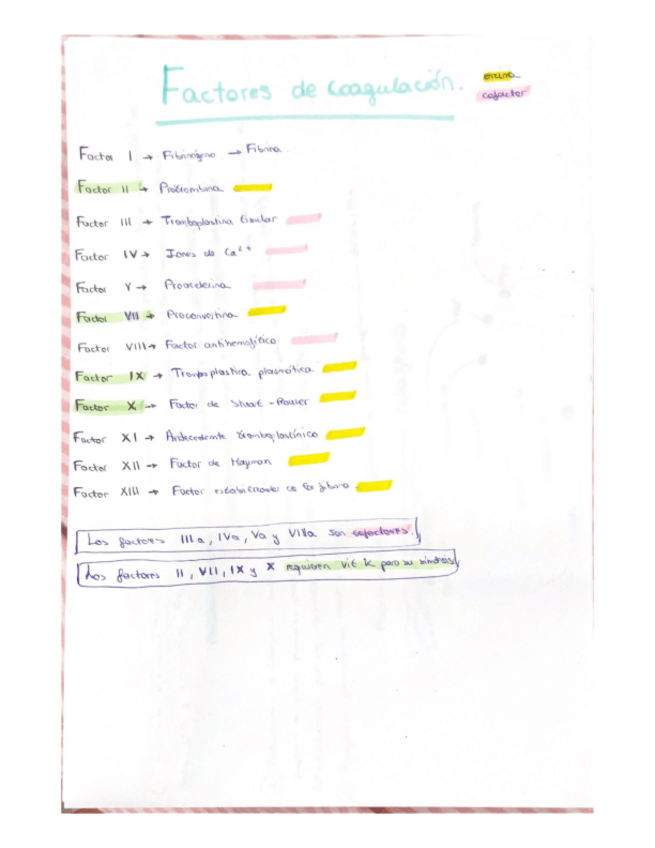 Factores de coagulación.
enzima
cofactor
Factor I → Fibrinógeno → Fibrina.
Factor II → Protrombina
Factor III → Tromboplastina tisular
Factor IV → Iones de Ca²⁺
Factor V → Proacelerina
Factor VII → Proconvertina
Factor VIII → Factor antihemofílico
Factor IX → Tromboplastina plasmática
Factor X → Factor de Stuart-Power
Factor XI → Antecedente tromboplastínico
Factor XII → Factor de Hageman
Factor XIII → Factor estabilizante de la fibrina
Los factores IIIa, IVa, Va y VIIIa son cofactores.
Los factores II, VII, IX y X requieren vit K para su síntesis